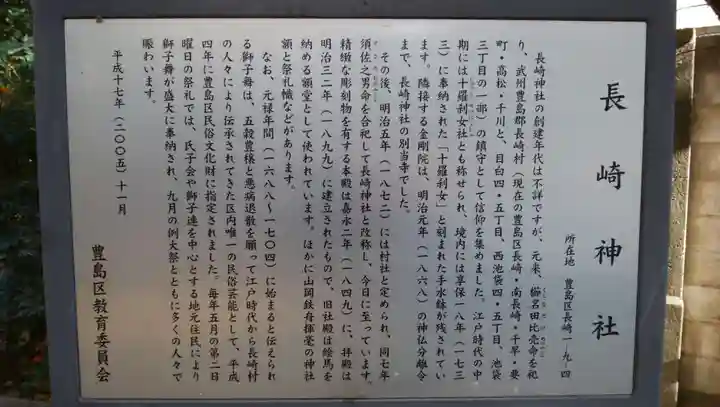 長崎神社
所在地 豊島区長崎一-九-四
長崎神社の創建年代は不詳ですが、元来、櫛名田比売命を祀
り、武州豊島郡長崎村（現在の豊島区長崎・南長崎・千早・要
町・高松・千川と、目白四・五丁目、西池袋四・五丁目、池袋
三丁目の一部）の鎮守として信仰を集めました。江戸時代の中
期には十羅刹女社とも称せられ、境内には享保一八年（一七三
三）に奉納された「十羅刹女」と刻まれた手水鉢が残されてい
ます。隣接する金剛院は、明治元年（一八六八）の神仏分離令
まで、長崎神社の別当寺でした。
その後、明治五年（一八七二）には村社と定められ、同七年
須佐之男命を合祀して長崎神社と改称し、今日に至っています。
精緻な彫刻物を有する本殿は嘉永二年（一八四九）に、拝殿は
明治三二年（一八九九）に建立されたもので、旧社殿は絵馬を
納める額堂として使われています。ほかに山岡鉄舟揮毫の神社
額と祭礼幟などがあります。
なお、元禄年間（一六八八～一七〇四）に始まると伝えられ
る獅子舞は、五穀豊穣と悪病退散を願って江戸時代から長崎村
の人々により伝承されてきた区内唯一の民俗芸能として、平成
四年に豊島区民俗文化財に指定されました。毎年五月の第二日
曜日の祭礼では、氏子会や獅子連を中心とする地元住民により
獅子舞が盛大に奉納され、九月の例大祭とともに多くの人々で
賑わいます。
平成十七年（二〇〇五）十一月
豊島区教育委員会